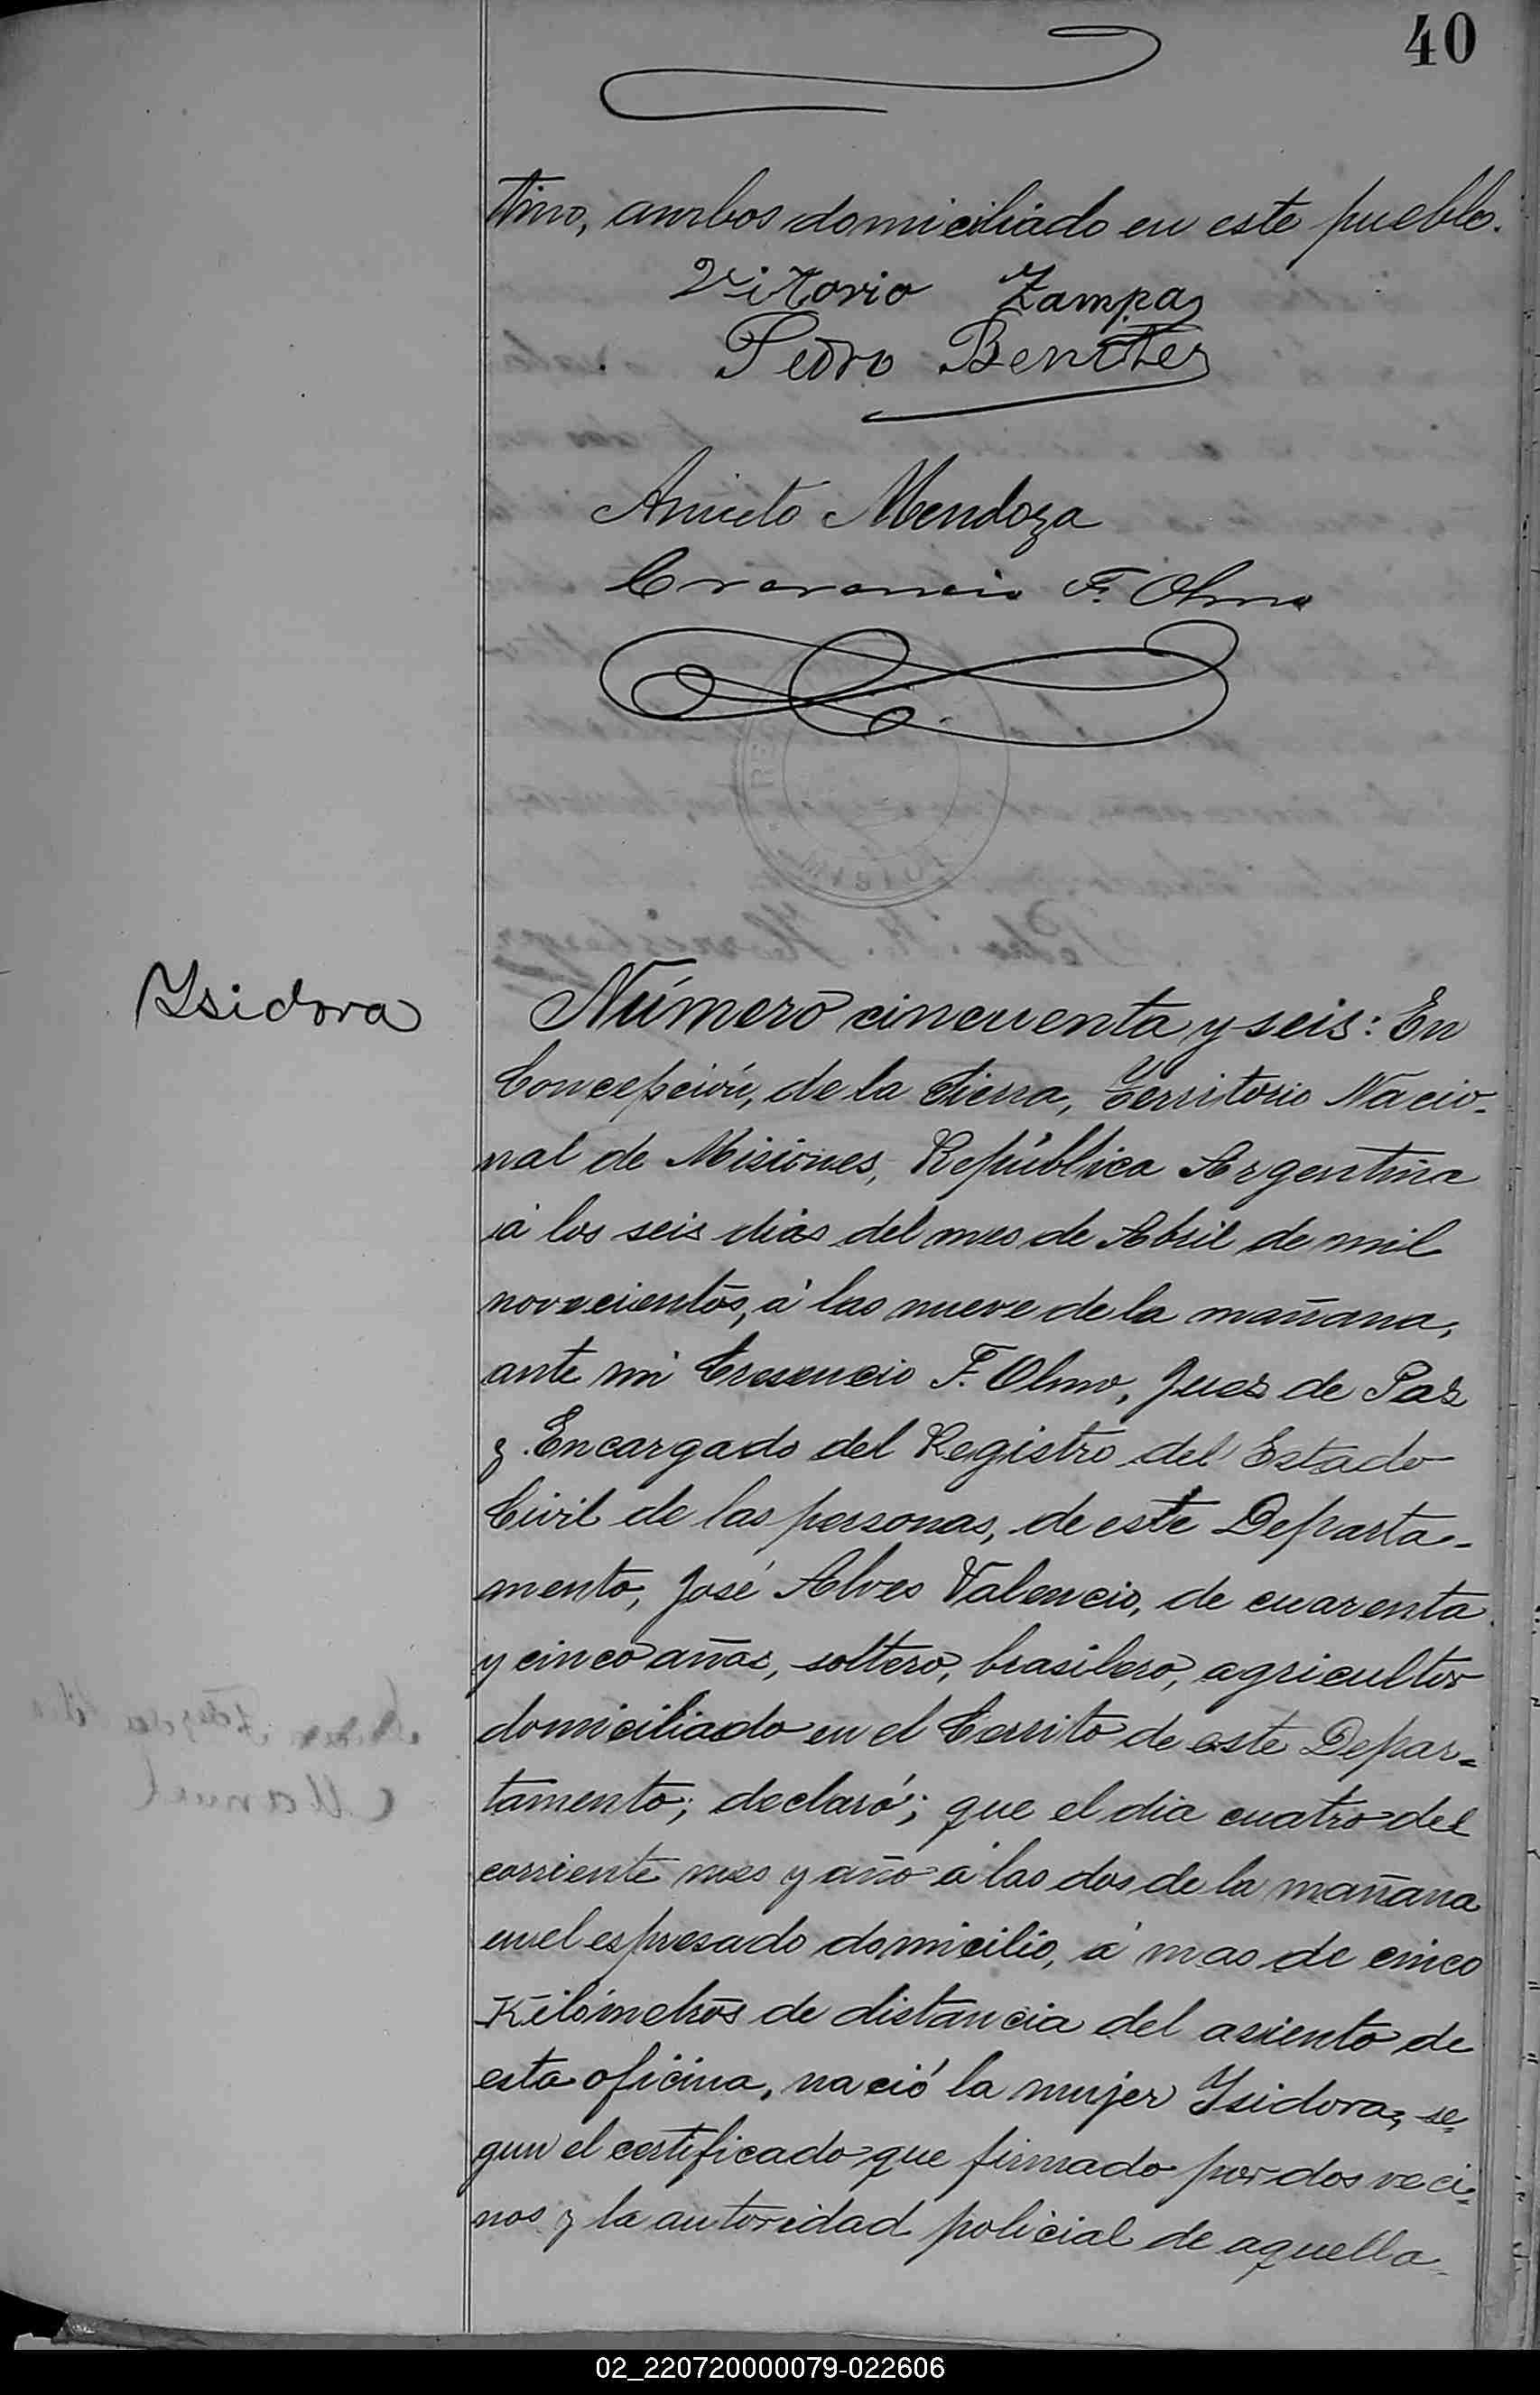 40
tino, ambos domiciliado en este pueblo.
Vitorio Zampa
Pedro Benites
Aniceto Mendoza
F. Olmo
Isidora
Número cincuenta y seis: En
Concepción, de la Sierra, Territorio Nacio-
nal de Misiones, República Argentina
á los seis dias del mes de Abril de mil
novecientos, á las nueve de la mañana,
ante mi Cresencio F. Olmo, Juez de Paz
y Encargado del Registro del Estado
Civil de las personas, de este Departa-
mento, José Alves Valencio, de cuarenta
y cinco años, soltero, brasilero, agricultor
domiciliado en el Cerrito de este Depar=
tamento; declaró; que el dia cuatro del
corriente mes y año á las dos de la mañana
en el espresado domicilio, á mas de cinco
Kilómetros de distancia del asiento de
esta oficina, nació la mujer Isidora, se=
gun el certificado que firmado por dos veci=
nos y la autoridad policial de aquella
02_220720000079-022606